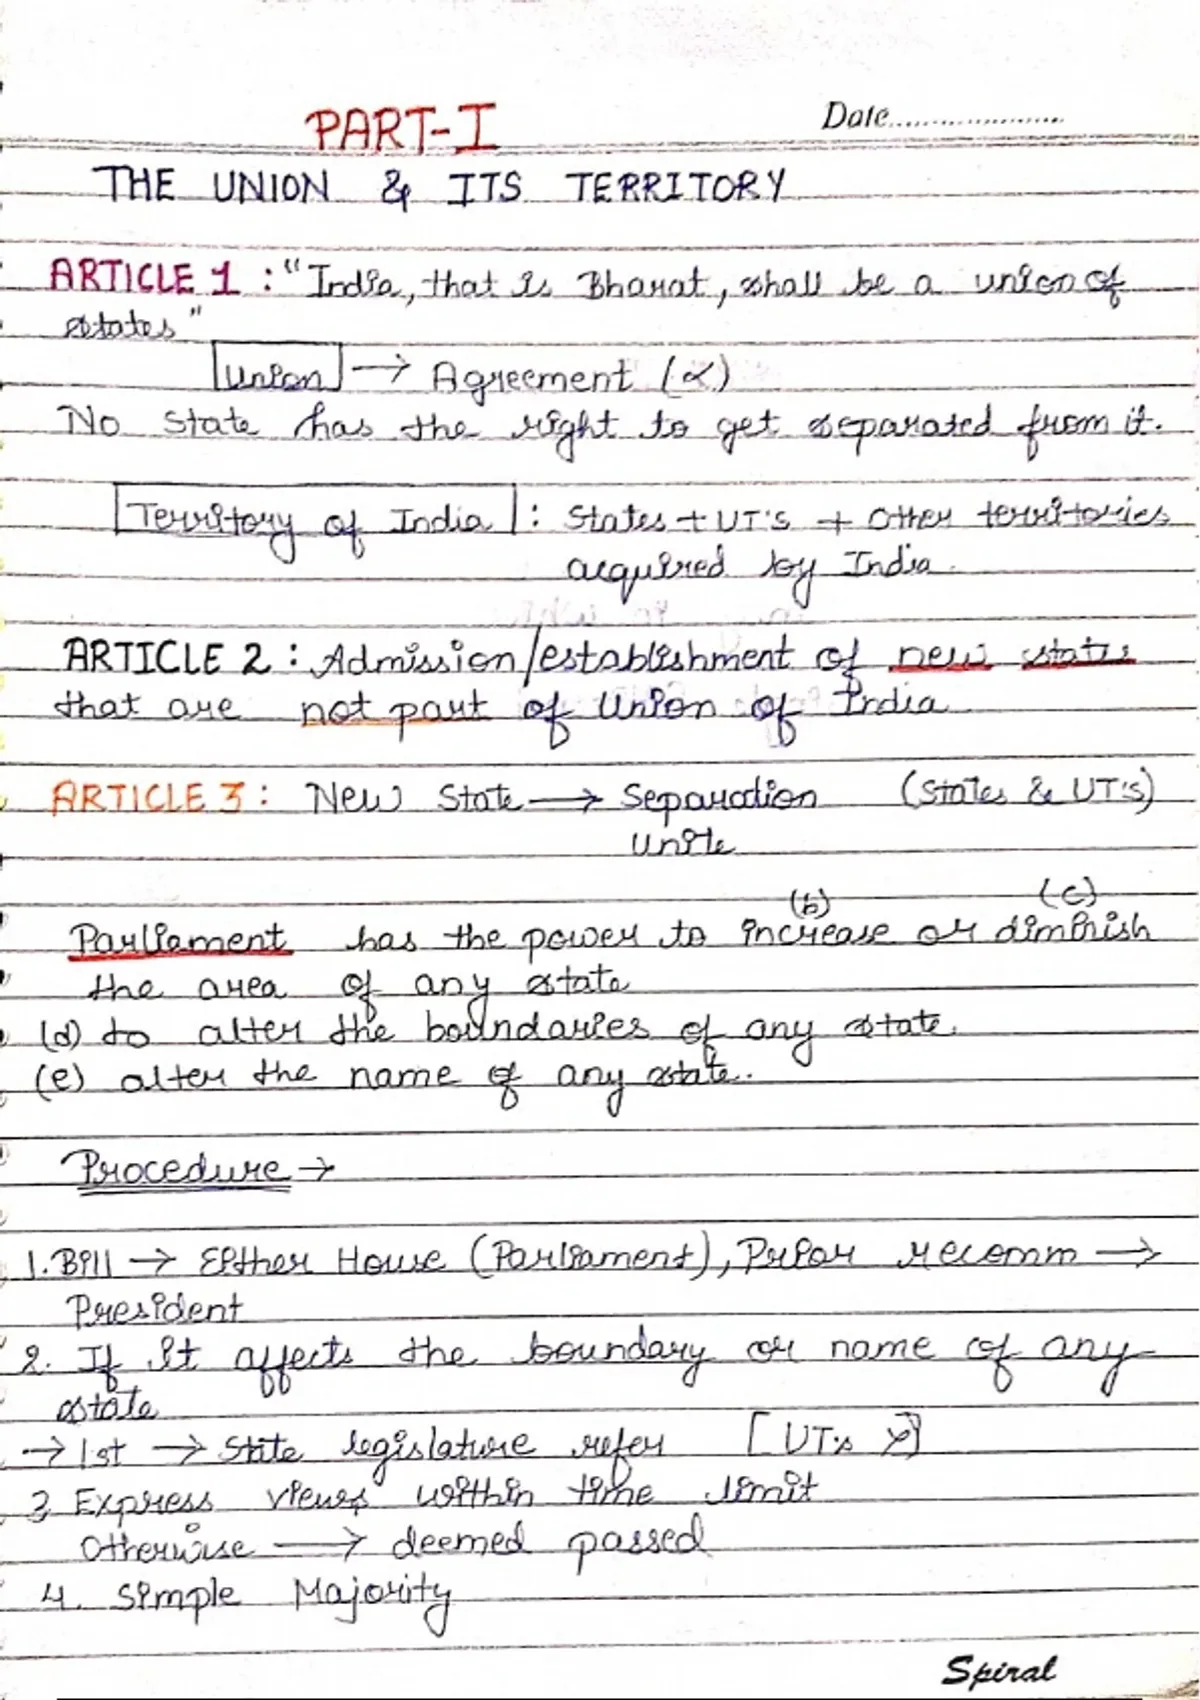 PART-I
Date.....................
THE UNION & ITS TERRITORY
ARTICLE 1 : "India, that is Bharat, shall be a union of
states"
Union → Agreement (x)
No state has the right to get separated from it.
Territory of India : States + UT's + Other territories
acquired by India.
ARTICLE 2 : Admission/establishment of new states
that are not part of Union of India
ARTICLE 3 : New State → Separation (States & UT's)
Unite
(b) (c)
Parliament has the power to increase or diminish
the area of any state
(d) to alter the boundaries of any state.
(e) alter the name of any state.
Procedure →
1. Bill → Either House (Parliament), Prior recomm →
President
2. If it affects the boundary or name of any
state
→ 1st → State legislature refer [UT's x]
3 Express views within time limit
Otherwise → deemed passed
4. Simple Majority
Spiral